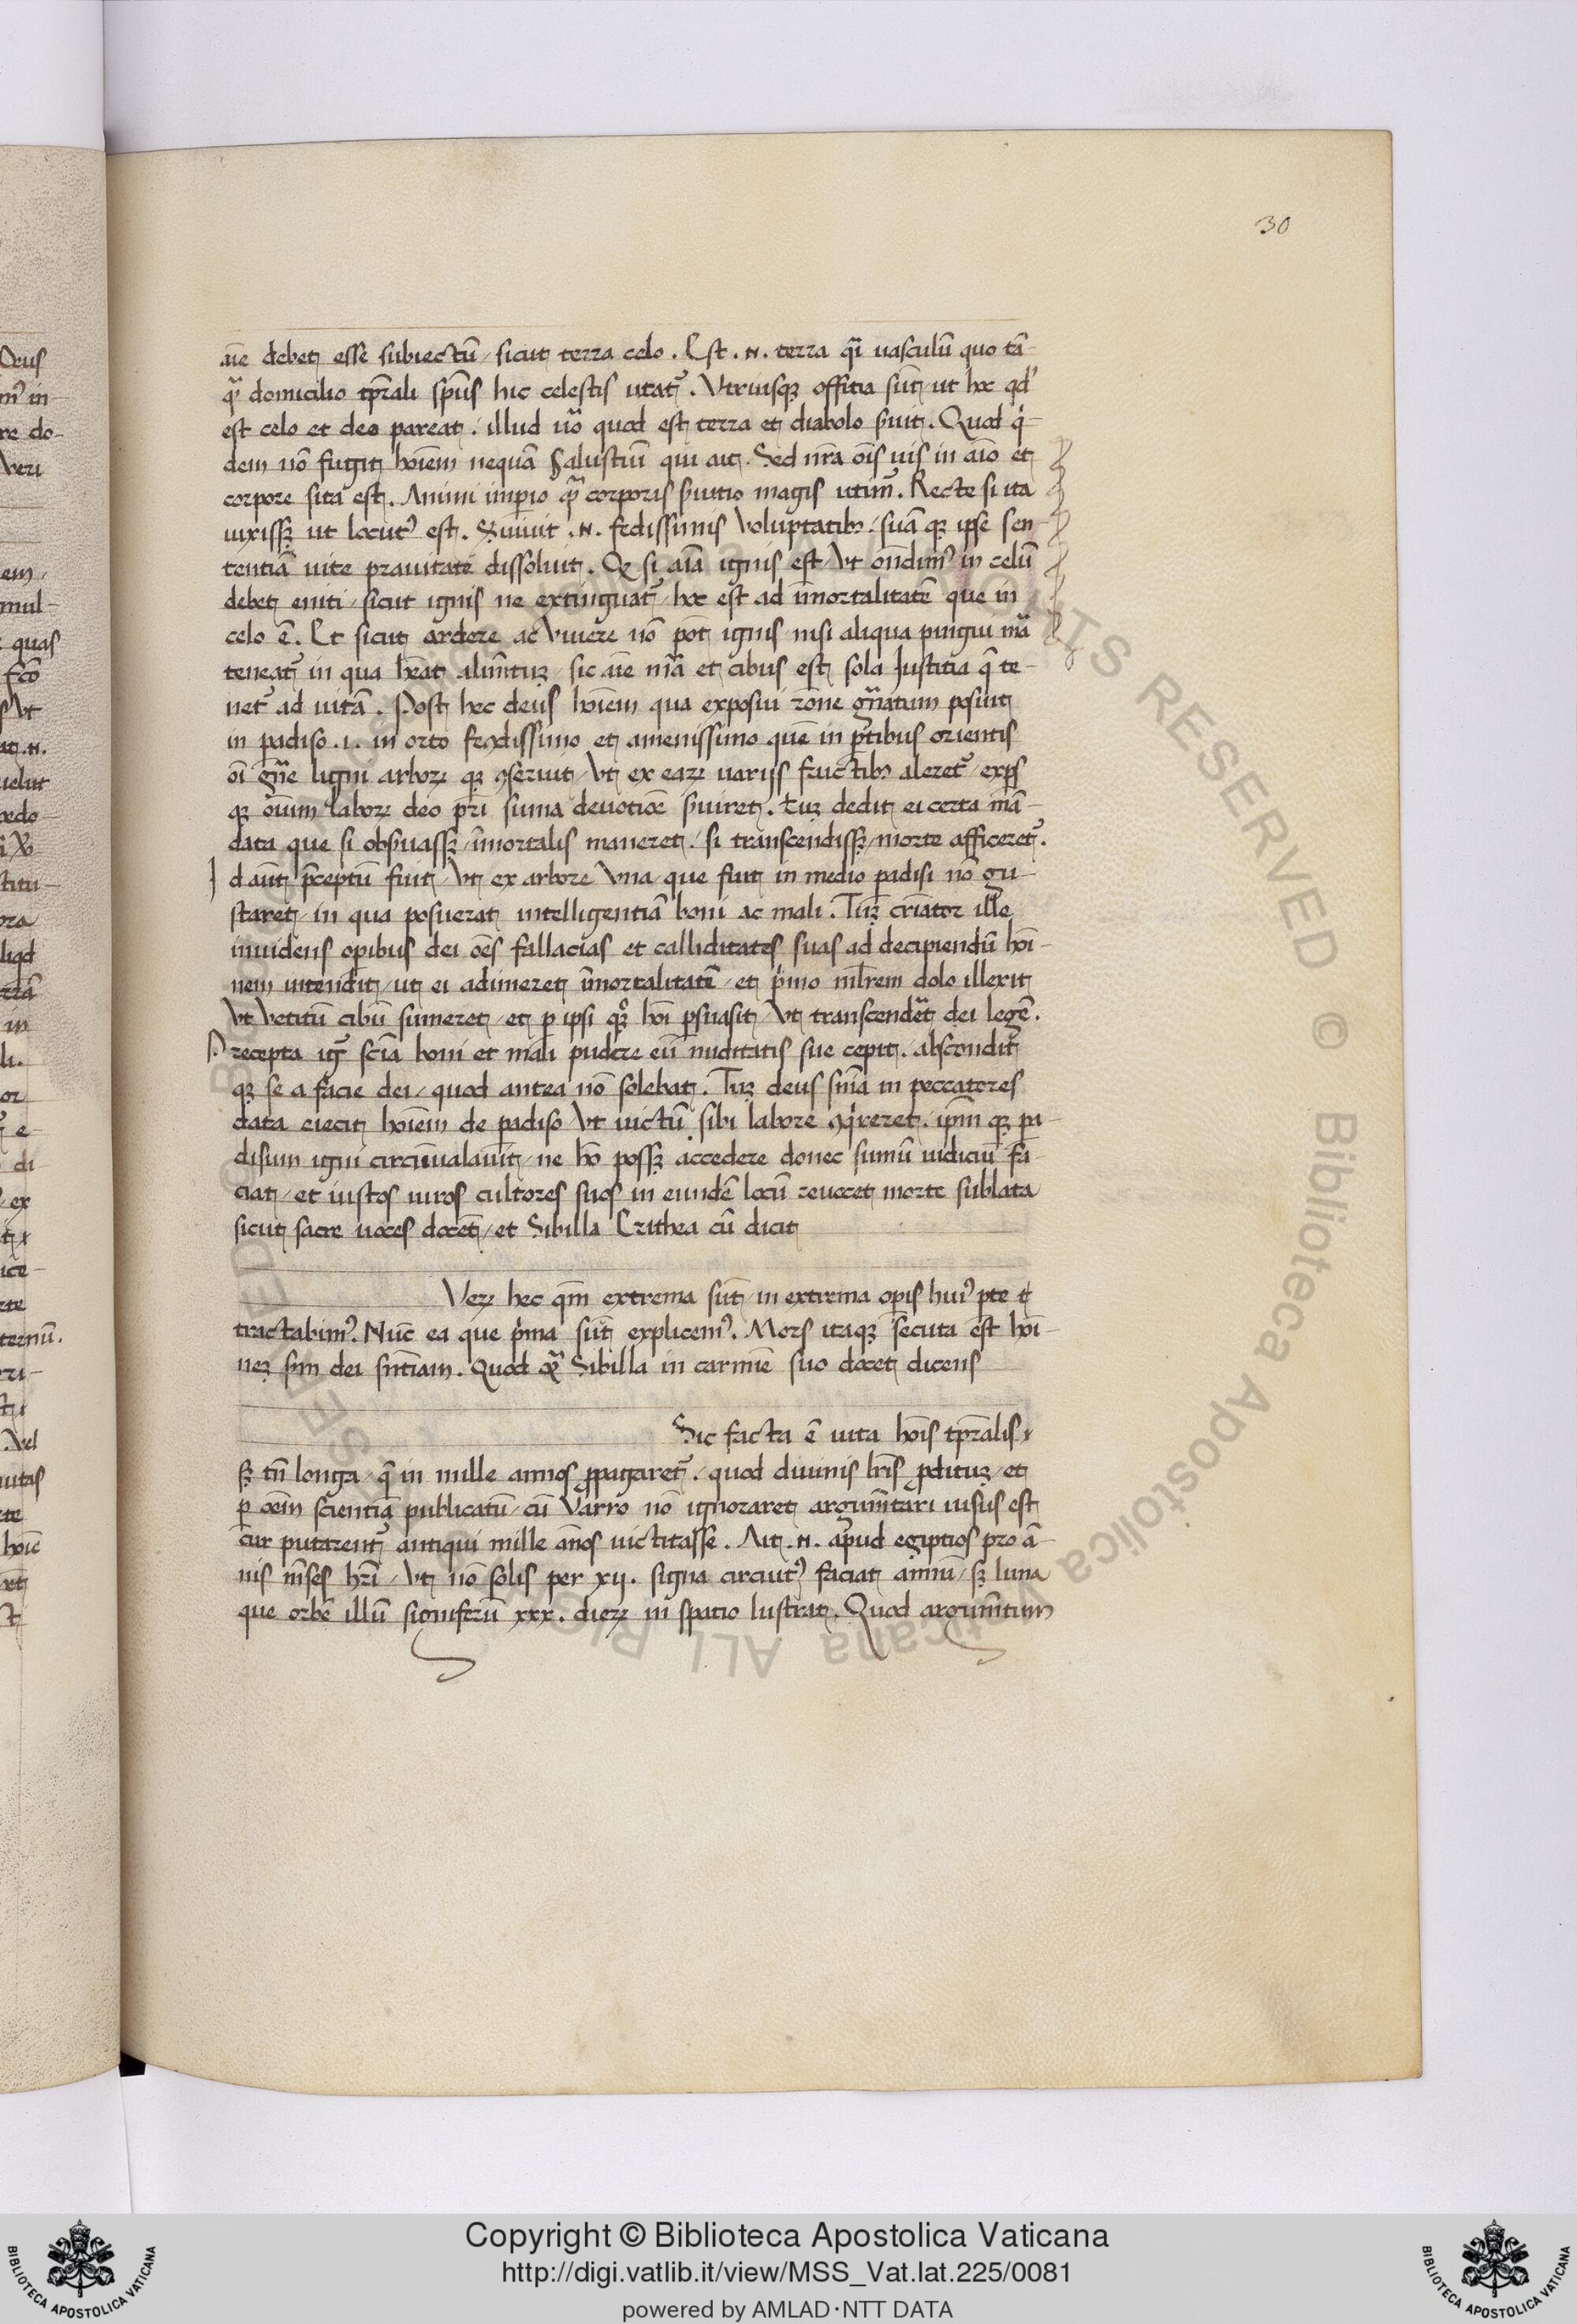 30
aīe debet esse subiectū / sicut terra celo . Est . n . terra q̄i uasculū quo tā-
q̄ domicilio tp̄rali sp̄us hic celestis utat̄ . Vtriusqꝫ offitia sūt / ut hoc qd̓
est celo et deo pareat . illud ūo quod est terra et diabolo ẜuit . Quod q̓-
dem nō fugit hoīem nequā Salustiū qui ait . Sed nr̄a oīs uis in aīo et
corpore sita est . Animi imperio q̄ corporis ẜuitio magis utim̄ . Recte si ita
uixissꝫ ut locutꝰ est . Seruiuit . n . fedissimis Voluptatibꝫ / suā qꝫ ipse sen-
tentiā uite prauitate dissoluit . Qꝫ si aīa ignis est / Vt on̄dimꝰ in celū
debet eniti / sicut ignis ne extinguat̄ / hoc est ad īmortalitatē que in
celo ē . Et sicut ardere ac Viuere nō pōt ignis nisi aliqua pingui mā
teneat̄ in qua heāt alim̄tuꝫ / sic aīe mā et cibus est sola Justitia q̄ te-
net̄ ad uitā . Post hec deus hoīem qua exposui rōne gn̄atum posuit
in ꝑadiso . i . in orto fecūdissimo et amenissimo quē in ꝑtibus orientis
oī gn̄e ligni arboꝝ qꝫ ꝯseruit / Vt ex eaꝝ uarijs fructibꝫ aleret̄ / exp̄s
qꝫ oīum laboꝝ deo pr̄i suma deuotiōe ẜuiret . tuꝫ dedit ei certa mā-
data que si obẜuassꝫ / īmortalis maneret . si transcendissꝫ / morte afficeret̄ .
Id aūt p̄ceptū fuit / Vt ex arbore Vna que fuit in medio ꝑadisi nō gu-
staret / in qua posuerat intelligentiā boni ac mali . Tuꝫ crīator ille
inuidens oꝑibus dei oēs fallacias et calliditates suas ad decipiendū hoī-
nem intendit / ut ei adimeret īmortalitatē / et p̓mo mlīrem dolo illexit
Vt Vetitū cibū sumeret / et ꝑ ipsi qꝫ hoī ꝑsuasit / Vt transcendēt dei legē .
Precepta igr̄ scīa boni et mali pudere eū nuditatis sue cepit . abscondit
qꝫ se a facie dei / quod antea nō solebat . Tuꝫ deus sn̄ia in peccatores
data eiecit hoīem de ꝑadiso Vt uictū sibi labore ꝯq̓reret . ipm̄ qꝫ pa-
disum igni circūualauit / ne hō possꝫ accedere donec sumū iudiciū fa-
ciat / et iustos uiros cultores suos in eundē locū reuocet morte sublata
sicut sacre uoces docēt / et Sibilla Erithea cū dicit
Veꝝ hec qm̄ extrema sūt / in extrema oꝑis huiꝰ ꝑte ꝑ
tractabimꝰ . Nūc ea que p̓ma sūt explicemꝰ . Mors itaqꝫ secuta est hoī-
neꝫ sm̄ dei sn̄tiam . Quod qꝫ Sibilla in carmīe suo docet dicens
Sic facta ē uita hoīs tp̄ralis
sꝫ tn̄ longa / q̄ in mille annos ꝓpagaret̄ . quod diuinis lr̄is ꝓdituꝫ / et
ꝑ oēm scientiā publicatū / cū Varro nō ignoraret argum̄tari uisus est
cur putarent̄ antiqui mille ānos uictitasse . Ait . n . apud egiptios pro ā-
nis mēses hr̄i / Vt nō solis per xij . signa circuitꝰ faciat annū / sꝫ luna
que orbē illū signiferū xxx . dieꝝ in spatio lustrat . Quod argum̄tum
Copyright © Biblioteca Apostolica Vaticana
http://digi.vatlib.it/view/MSS_Vat.lat.225/0081
powered by AMLAD·NTT DATA